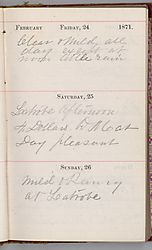 February, Friday, 24 1871.
Clear & Mild, all
day except at
noon little rain
Saturday, 25
Latrobe Afternoon
4 Dollars
Day pleasant
Sunday, 26
Mild & Rainy
at Latrobe